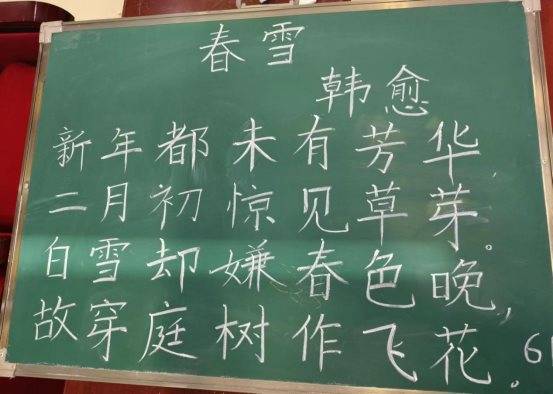 春雪
韩愈
新年都未有芳华,
二月初惊见草芽。
白雪却嫌春色晚,
故穿庭树作飞花。
6